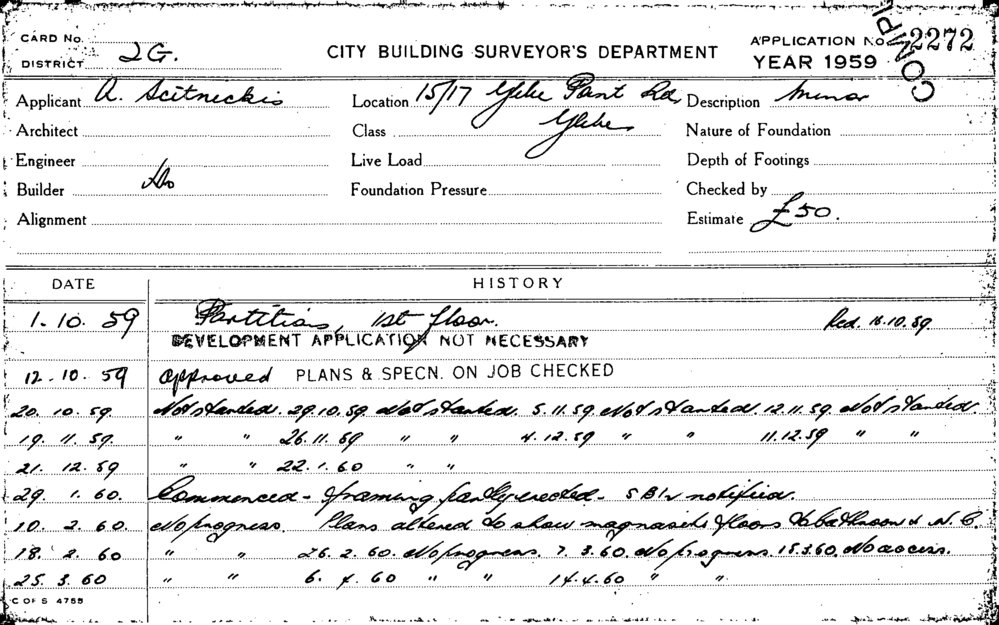 CARD No.
DISTRICT 2G.
CITY BUILDING SURVEYOR'S DEPARTMENT
APPLICATION No. 2272
YEAR 1959
COMPL
Applicant A. Scitneckis Location 15/17 Glebe Point Rd, Description Minor
Architect Class Glebe Nature of Foundation
Engineer Live Load Depth of Footings
Builder Do Foundation Pressure Checked by
Alignment Estimate £50.
DATE HISTORY
1.10.59 Partitions, 1st floor. Red. 16.10.59
DEVELOPMENT APPLICATION NOT NECESSARY
12.10.59 Approved PLANS & SPECN. ON JOB CHECKED
20.10.59. Not started. 29.10.59 Not started. 5.11.59 Not started. 12.11.59. Not started.
19.11.59. " " 26.11.59 " " 4.12.59 " " 11.12.59 " "
21.12.59 " " 22.1.60 " "
29.1.60. Commenced - framing partly erected - notified.
10.2.60. No progress. Plans altered to show magnasite floors to bathroom & W.C.
18.2.60 " " 26.2.60. No progress. 7.3.60. No progress. 15.3.60. No access.
25.3.60 " " 6.4.60 " " 14.4.60 " "
C OF S 4755